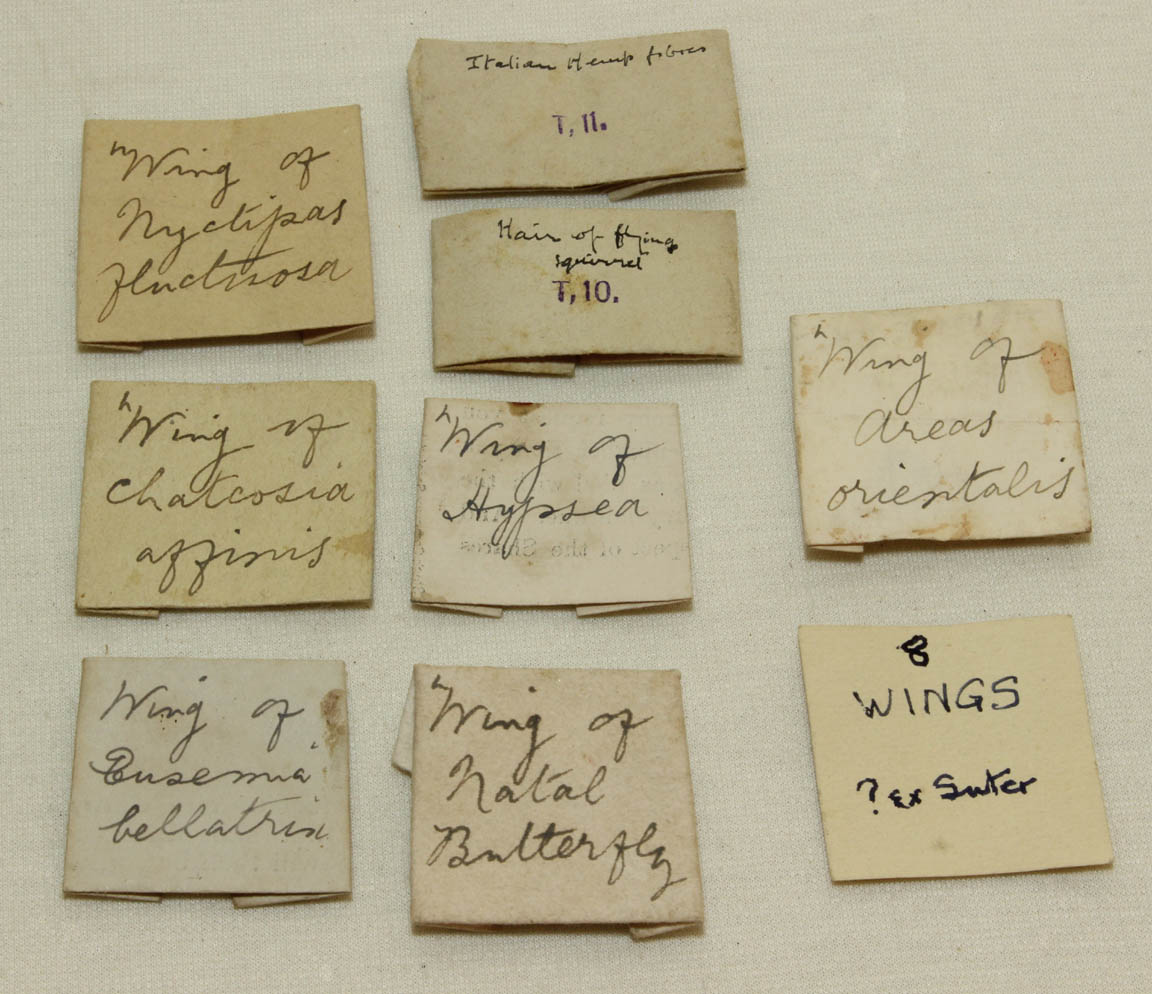 Wing of
Nyctipas
fluctuosa
Italian Hemp fibres
T, 11.
Hair of flying
squirrel
T, 10.
Wing of
Chatcosia
affinis
Wing of
Hypsea
pect of the Shares
Wing of
Areas
orientalis
Wing of
Eusemia
bellatrix
Wing of
Natal
Butterfly
8
WINGS
? ex Suter